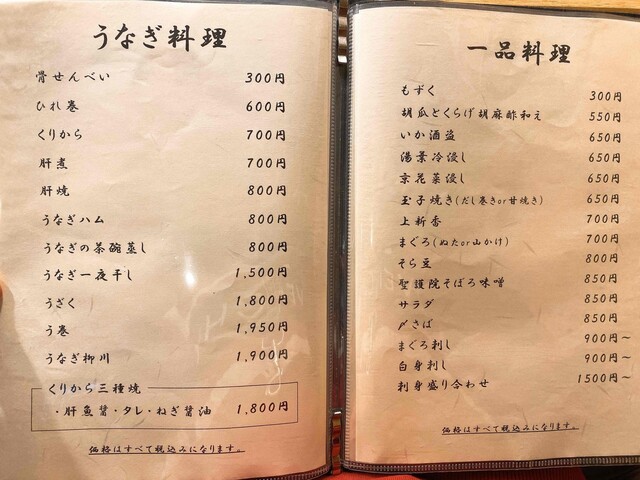 うなぎ料理
骨せんべい 300円
ひれ巻 600円
くりから 700円
肝煮 700円
肝焼 800円
うなぎハム 800円
うなぎの茶碗蒸し 800円
うなぎ一夜干し 1,500円
うざく 1,800円
う巻 1,950円
うなぎ柳川 1,900円
くりから三種焼
・肝魚醤・タレ・ねぎ醤油 1,800円
価格はすべて税込みになります。
一品料理
もずく 300円
胡瓜とくらげ胡麻酢和え 550円
いか酒盗 650円
湯葉冷浸し 650円
京花菜浸し 650円
玉子焼き(だし巻きor甘焼き) 650円
上新香 700円
まぐろ(ぬたor山かけ) 700円
そら豆 800円
聖護院そぼろ味噌 850円
サラダ 850円
〆さば 850円
まぐろ刺し 900円~
白身刺し 900円~
刺身盛り合わせ 1500円~
価格はすべて税込みになります。